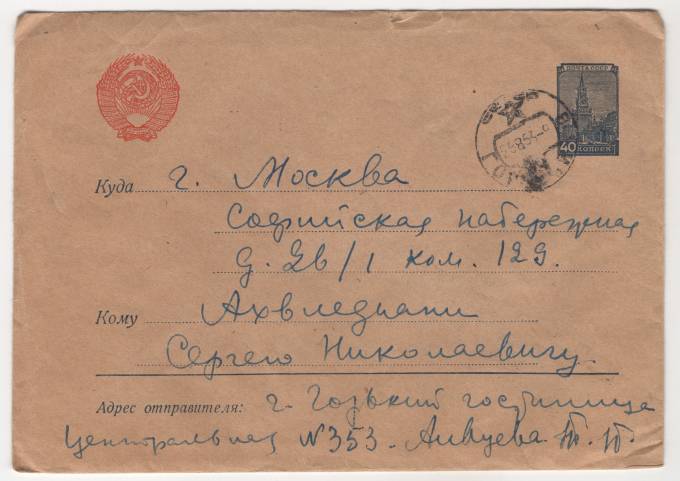 ПОЧТА СССР
40 КОПЕЕК
Куда г. Москва
Софийская набережная
д. 26/1 ком. 129.
Кому Ахвледиани
Сергею Николаевичу.
Адрес отправителя: г. Горький гостиница
Центральная N 353.